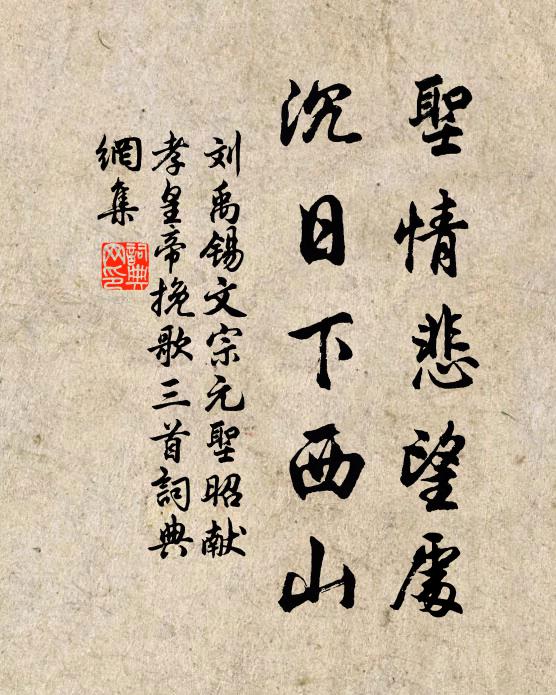 聖情悲望處
沉日下西山
刘禹锡文宗元聖昭献
孝皇帝挽歌三首詞典
網集
詞典網印